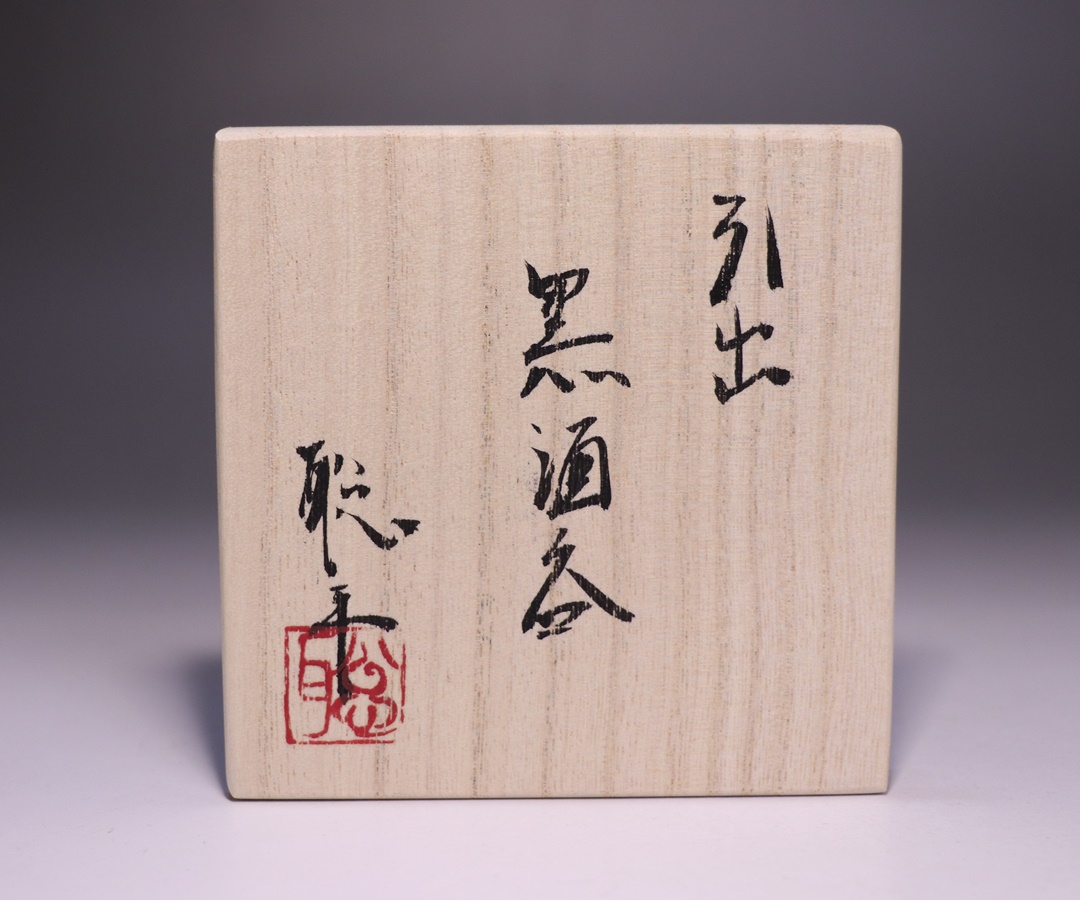 引出
黒酒呑
聡